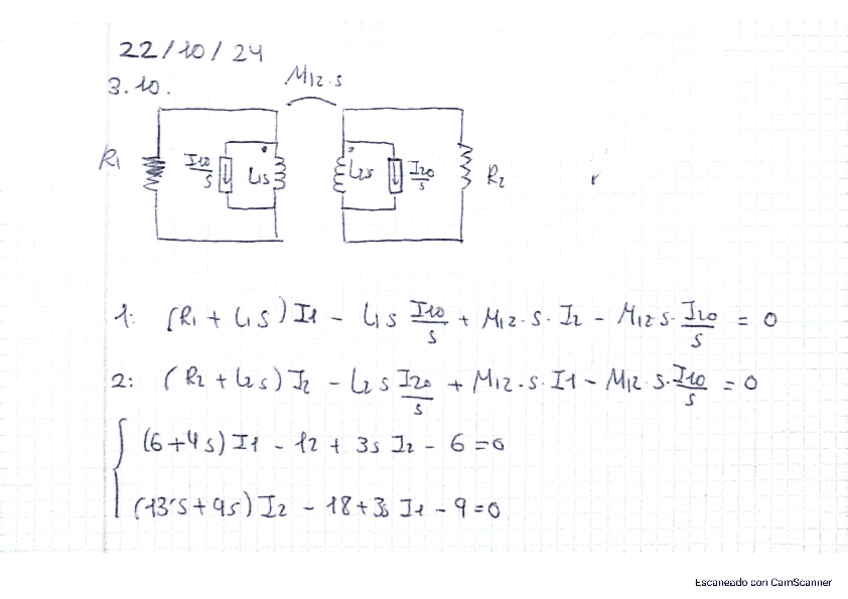 22/10/24
3.10.
M12·s
R1 I10/s L1s L2s I20/s R2
1: (R1 + L1s) I1 - L1s I10/s + M12·s·I2 - M12s·I20/s = 0
2: (R2 + L2s) I2 - L2s I20/s + M12·s·I1 - M12·s·I10/s = 0
(6+4s) I1 - 12 + 3s I2 - 6 = 0
(13's + 9s) I2 - 18 + 3s I1 - 9 = 0
Escaneado con CamScanner